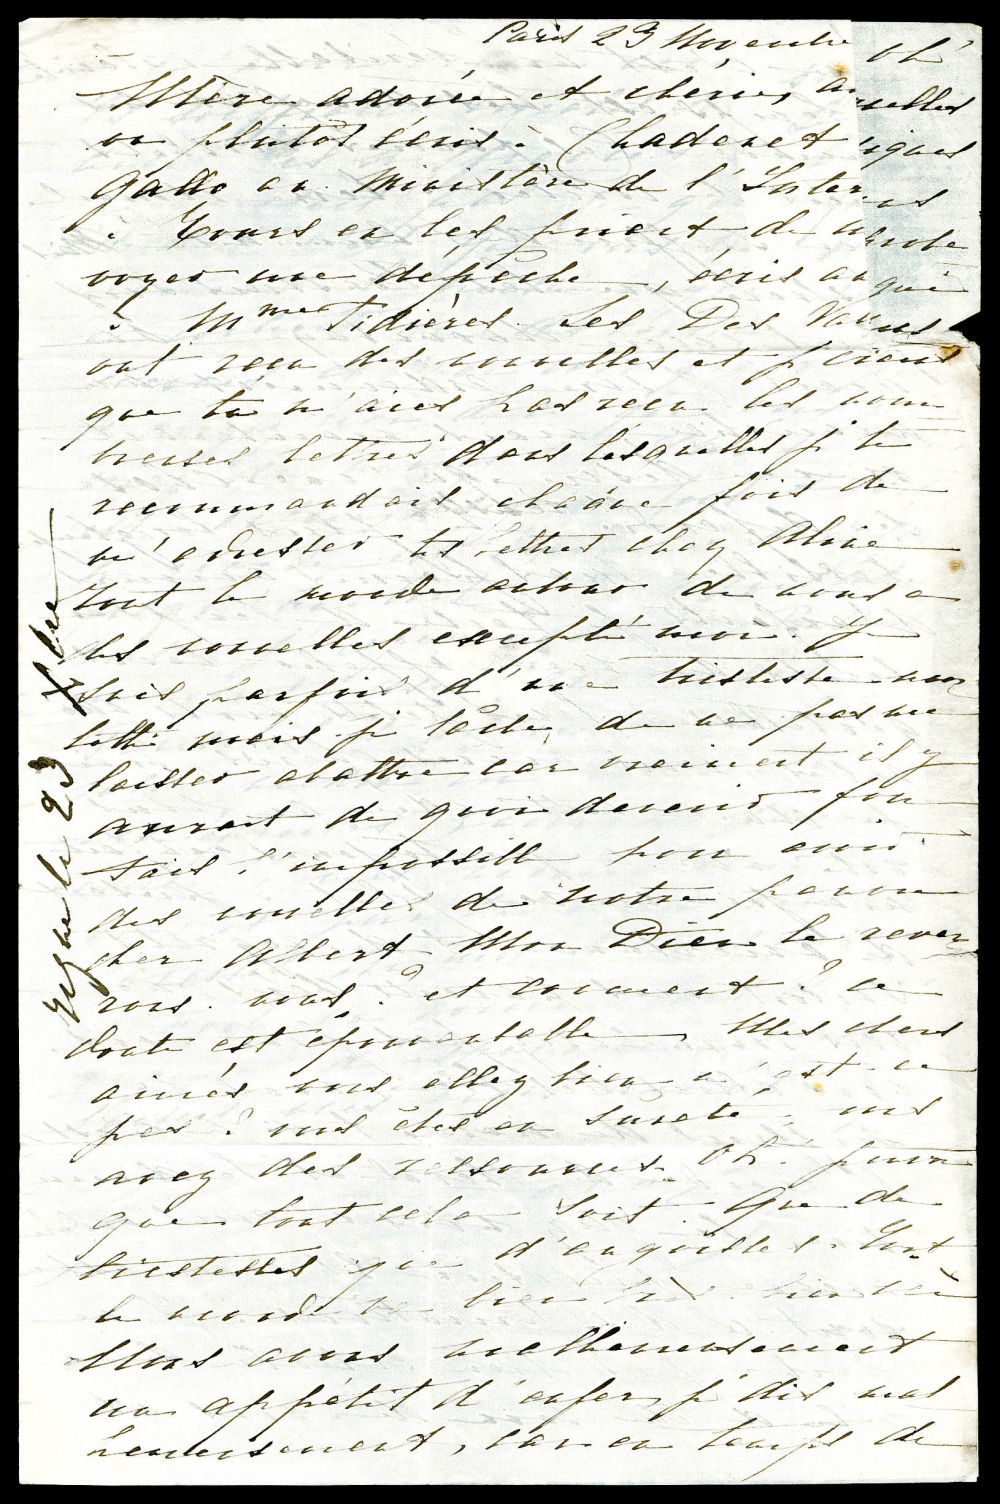 Paris 23 Novembre
Mère adorée et chérie,
ou plutôt écris à Chadenet
Gallo au Ministère de l'Inter
à Tours en les priant de
voyer une dépêche, écris au
à Mme Tidières. Les Des
ont reçu des nouvelles et je crains
que tu n'aies pas reçu les nom
breuses lettres dans lesquelles je te
recommandais chaque fois de
m'adresser tes lettres chez Aline
tout le monde autour de nous a
des nouvelles excepté moi. Je
suis parfois d'une tristesse mor
telle mais je tâche de ne pas me
laisser abattre car vraiment il y
aurait de quoi devenir fou
fais l'impossible pour avoir
des nouvelles de notre pauvre
cher Albert Mon Dieu le rever
rons-nous ? et comment ? ce
doute est épouvantable. Mes chers
aimés vous allez bien n'est-ce
pas ? vous êtes en sureté, vous
avez des ressources. Oh ! pourvu
que tout cela soit. Que de
tristesses que d'angoisses. Tout
le monde va bien très bien ici
Nous avons malheureusement
un appétit d'enfer, je dis mal
heureusement, car en temps de
oh
velles
le 23 Xbre